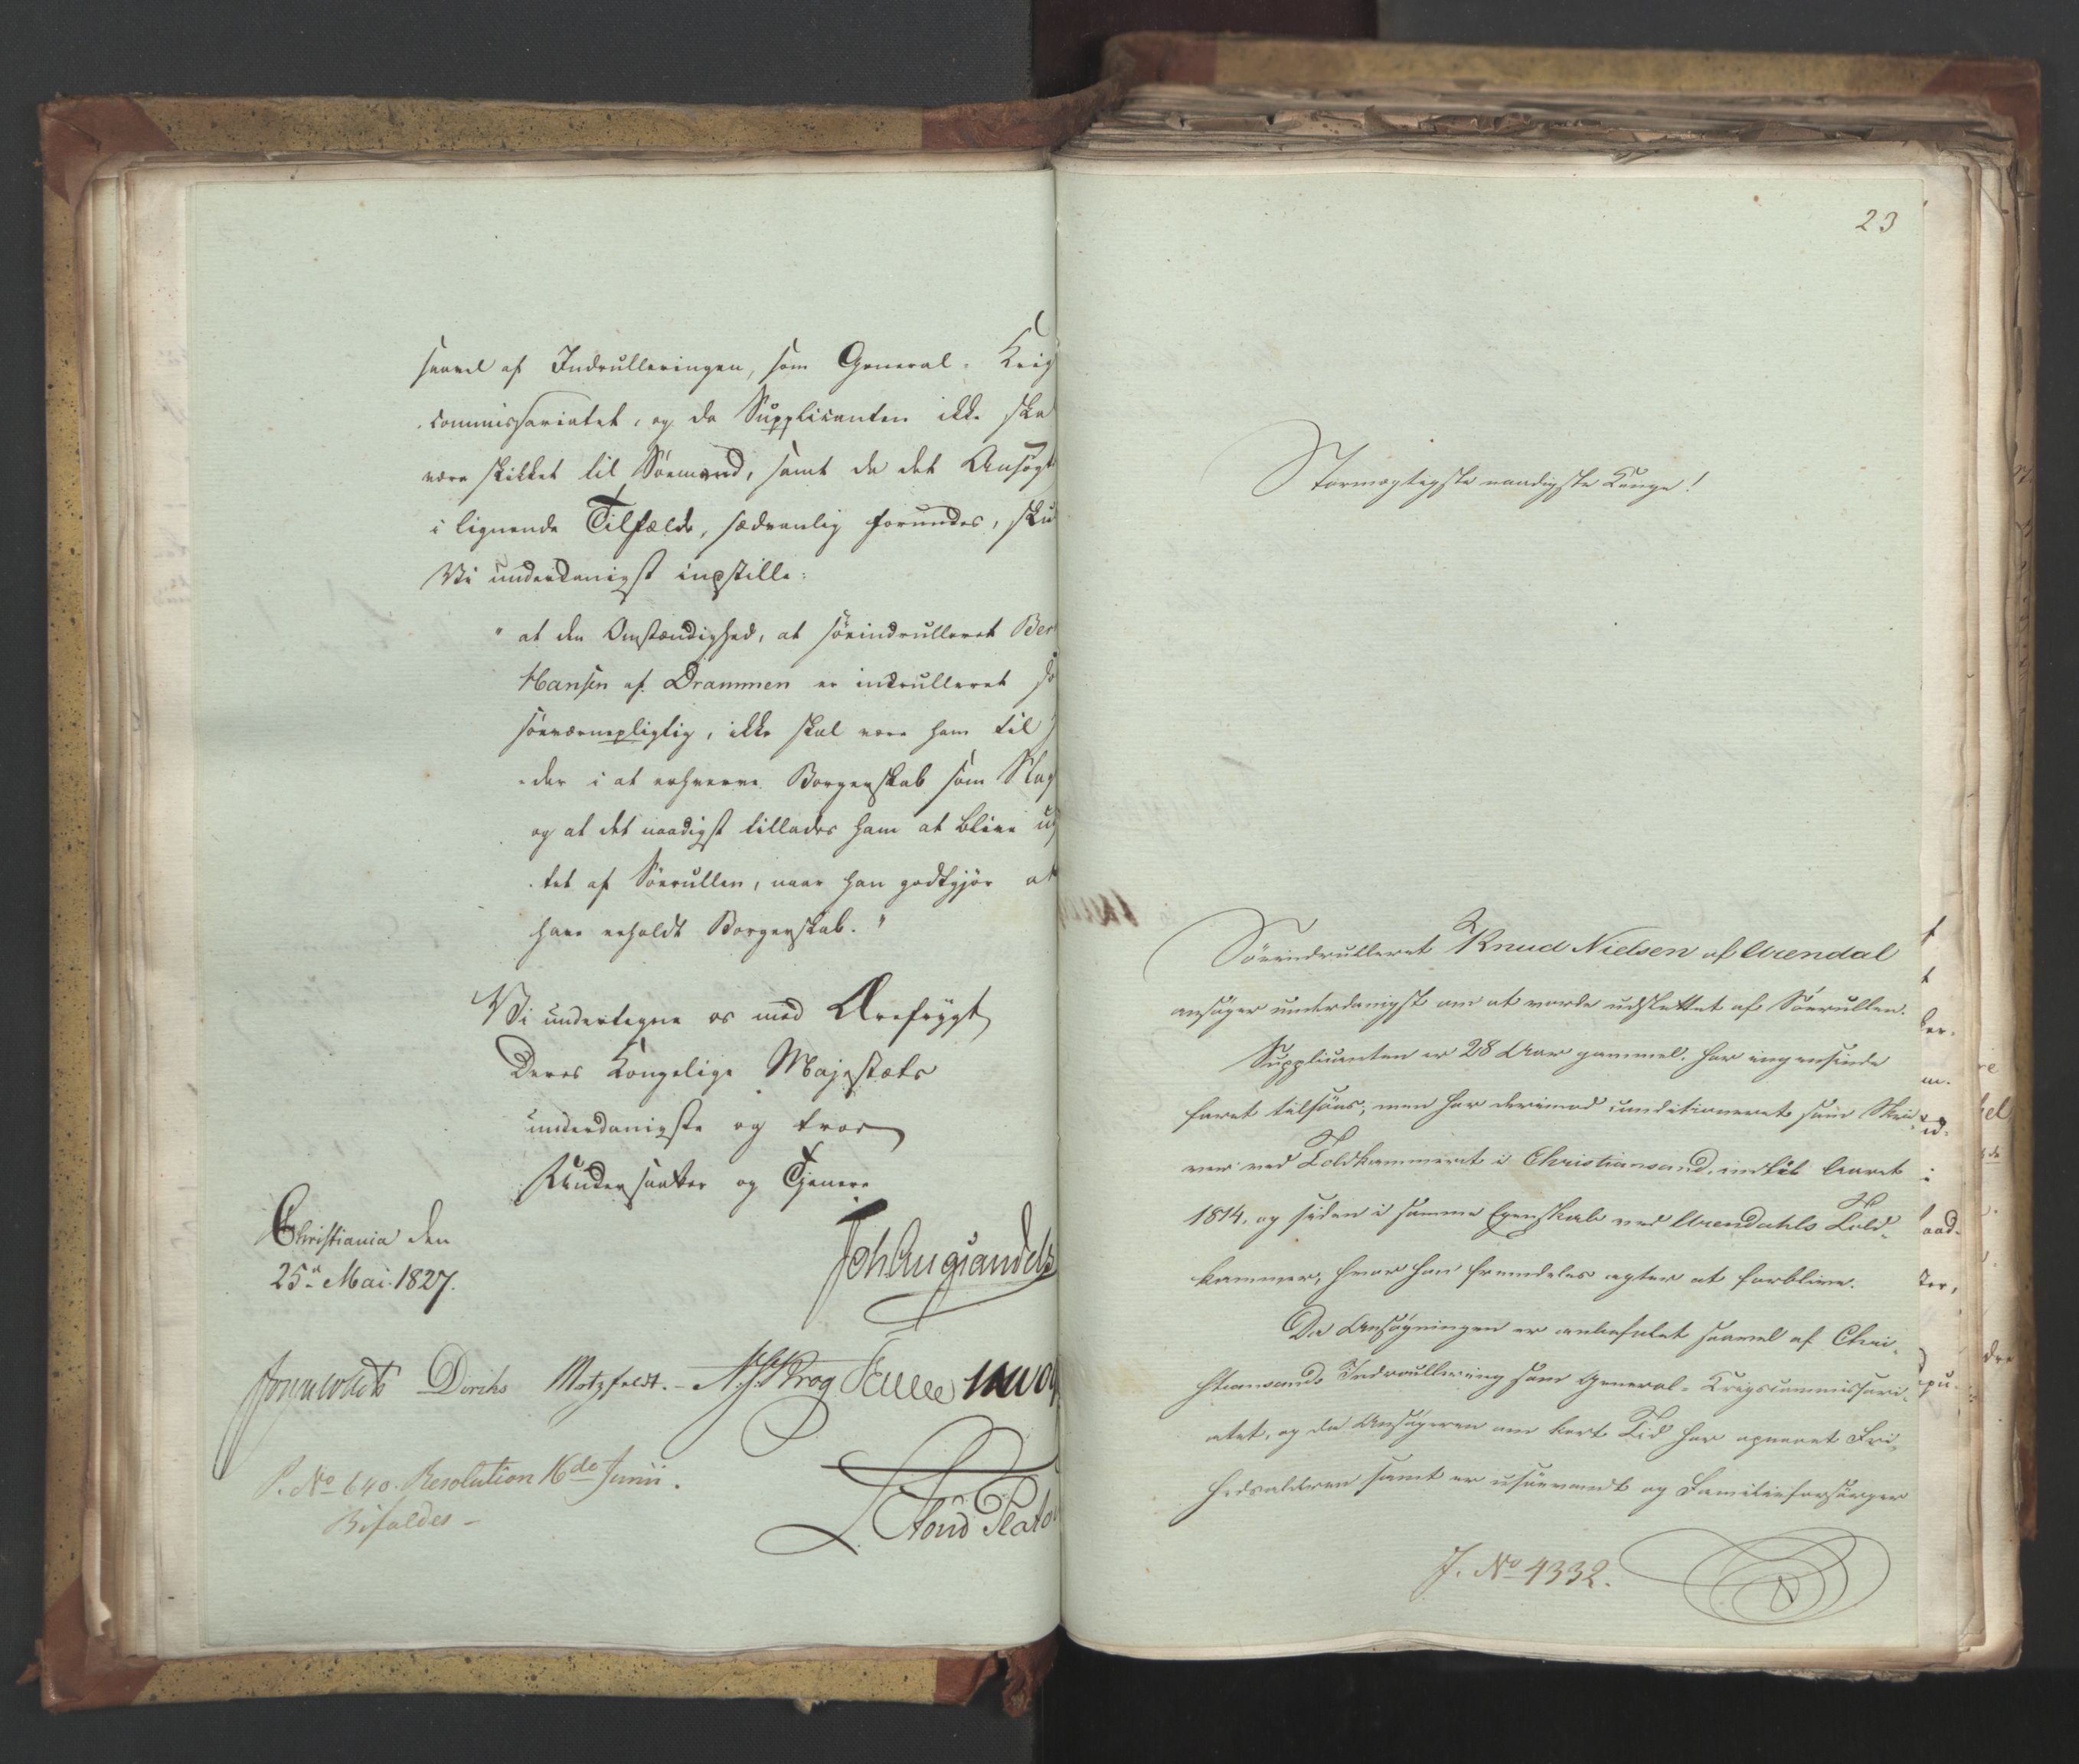 saavel af Indrulleringen, som General-Krig
commissariatet, og da Supplicanten ikke ska
være skikket til Söemand, samt da det Ansøgt
i lignende Tilfælde, sædvanlig forundes, sku
Vi underdanigst indstille:
"at den Omstændighed, at söeindrulleret Ber
Hansen af Drammen er indrulleret so
söeværnepligtig, ikke skal være ham til
-der i at erhverve Borgerskab som Slag
og at det naadigst tillades ham at blive ud
-tet af Söerullen, naar han godtgjör at
have erholdt Borgerskab."
Vi undertegne os med Ærefrygt
Deres Kongelige Majestæts
underdanigste og troe
Undersaatter og Tjenere
Christiania den
25de Mai 1827.
Joh Aug Sandels
Diriks Motzfeldt. Krog
L. Stoud Plato
P. No 640. Resolution 16de Junii.
Bifaldes -
23
Stormægtigste naadigste Konge!
Söeindrulleret Knud Nielsen af Arendal
ansöger underdanigst om at vorde udslettet af Söerullen.
Supplicanten er 28 Aar gammel, har ingensinde
faret tilsöes; men har derimod conditioneret som Skri-
ver ved Toldkammeret i Christiansand, indtil Aaret
1814, og siden i samme Egenskab ved Arendahls Told-
kammer, hvor han fremdeles agter at forblive.
Da Ansøgningen er anbefalet saavel af Chri-
stiansands Indroullering som General-Krigscommissari-
atet, og da Ansøgeren om kort Tid har opnaaet Fri-
hedsalderen samt er usöevandt og Familieforsörger
J. No 4332.